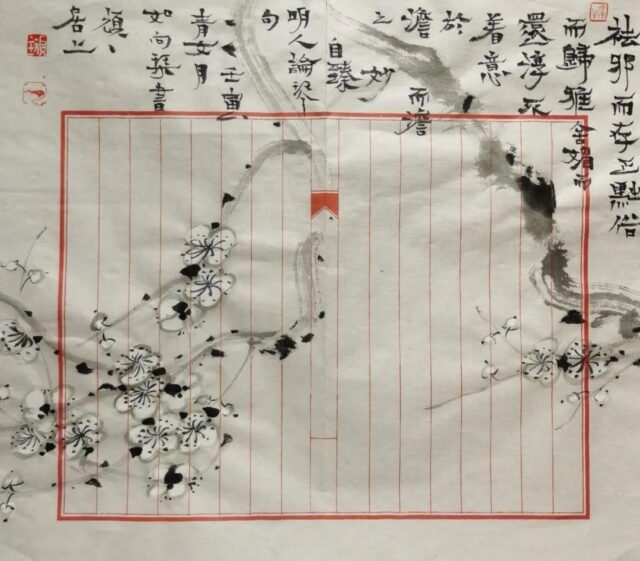 祛邪而存正黜俗
而歸雅舍媚而
還淳不
着意
於
澹而澹
之妙
自臻
明人論
句
壬寅
青女月
如向琴書
居上